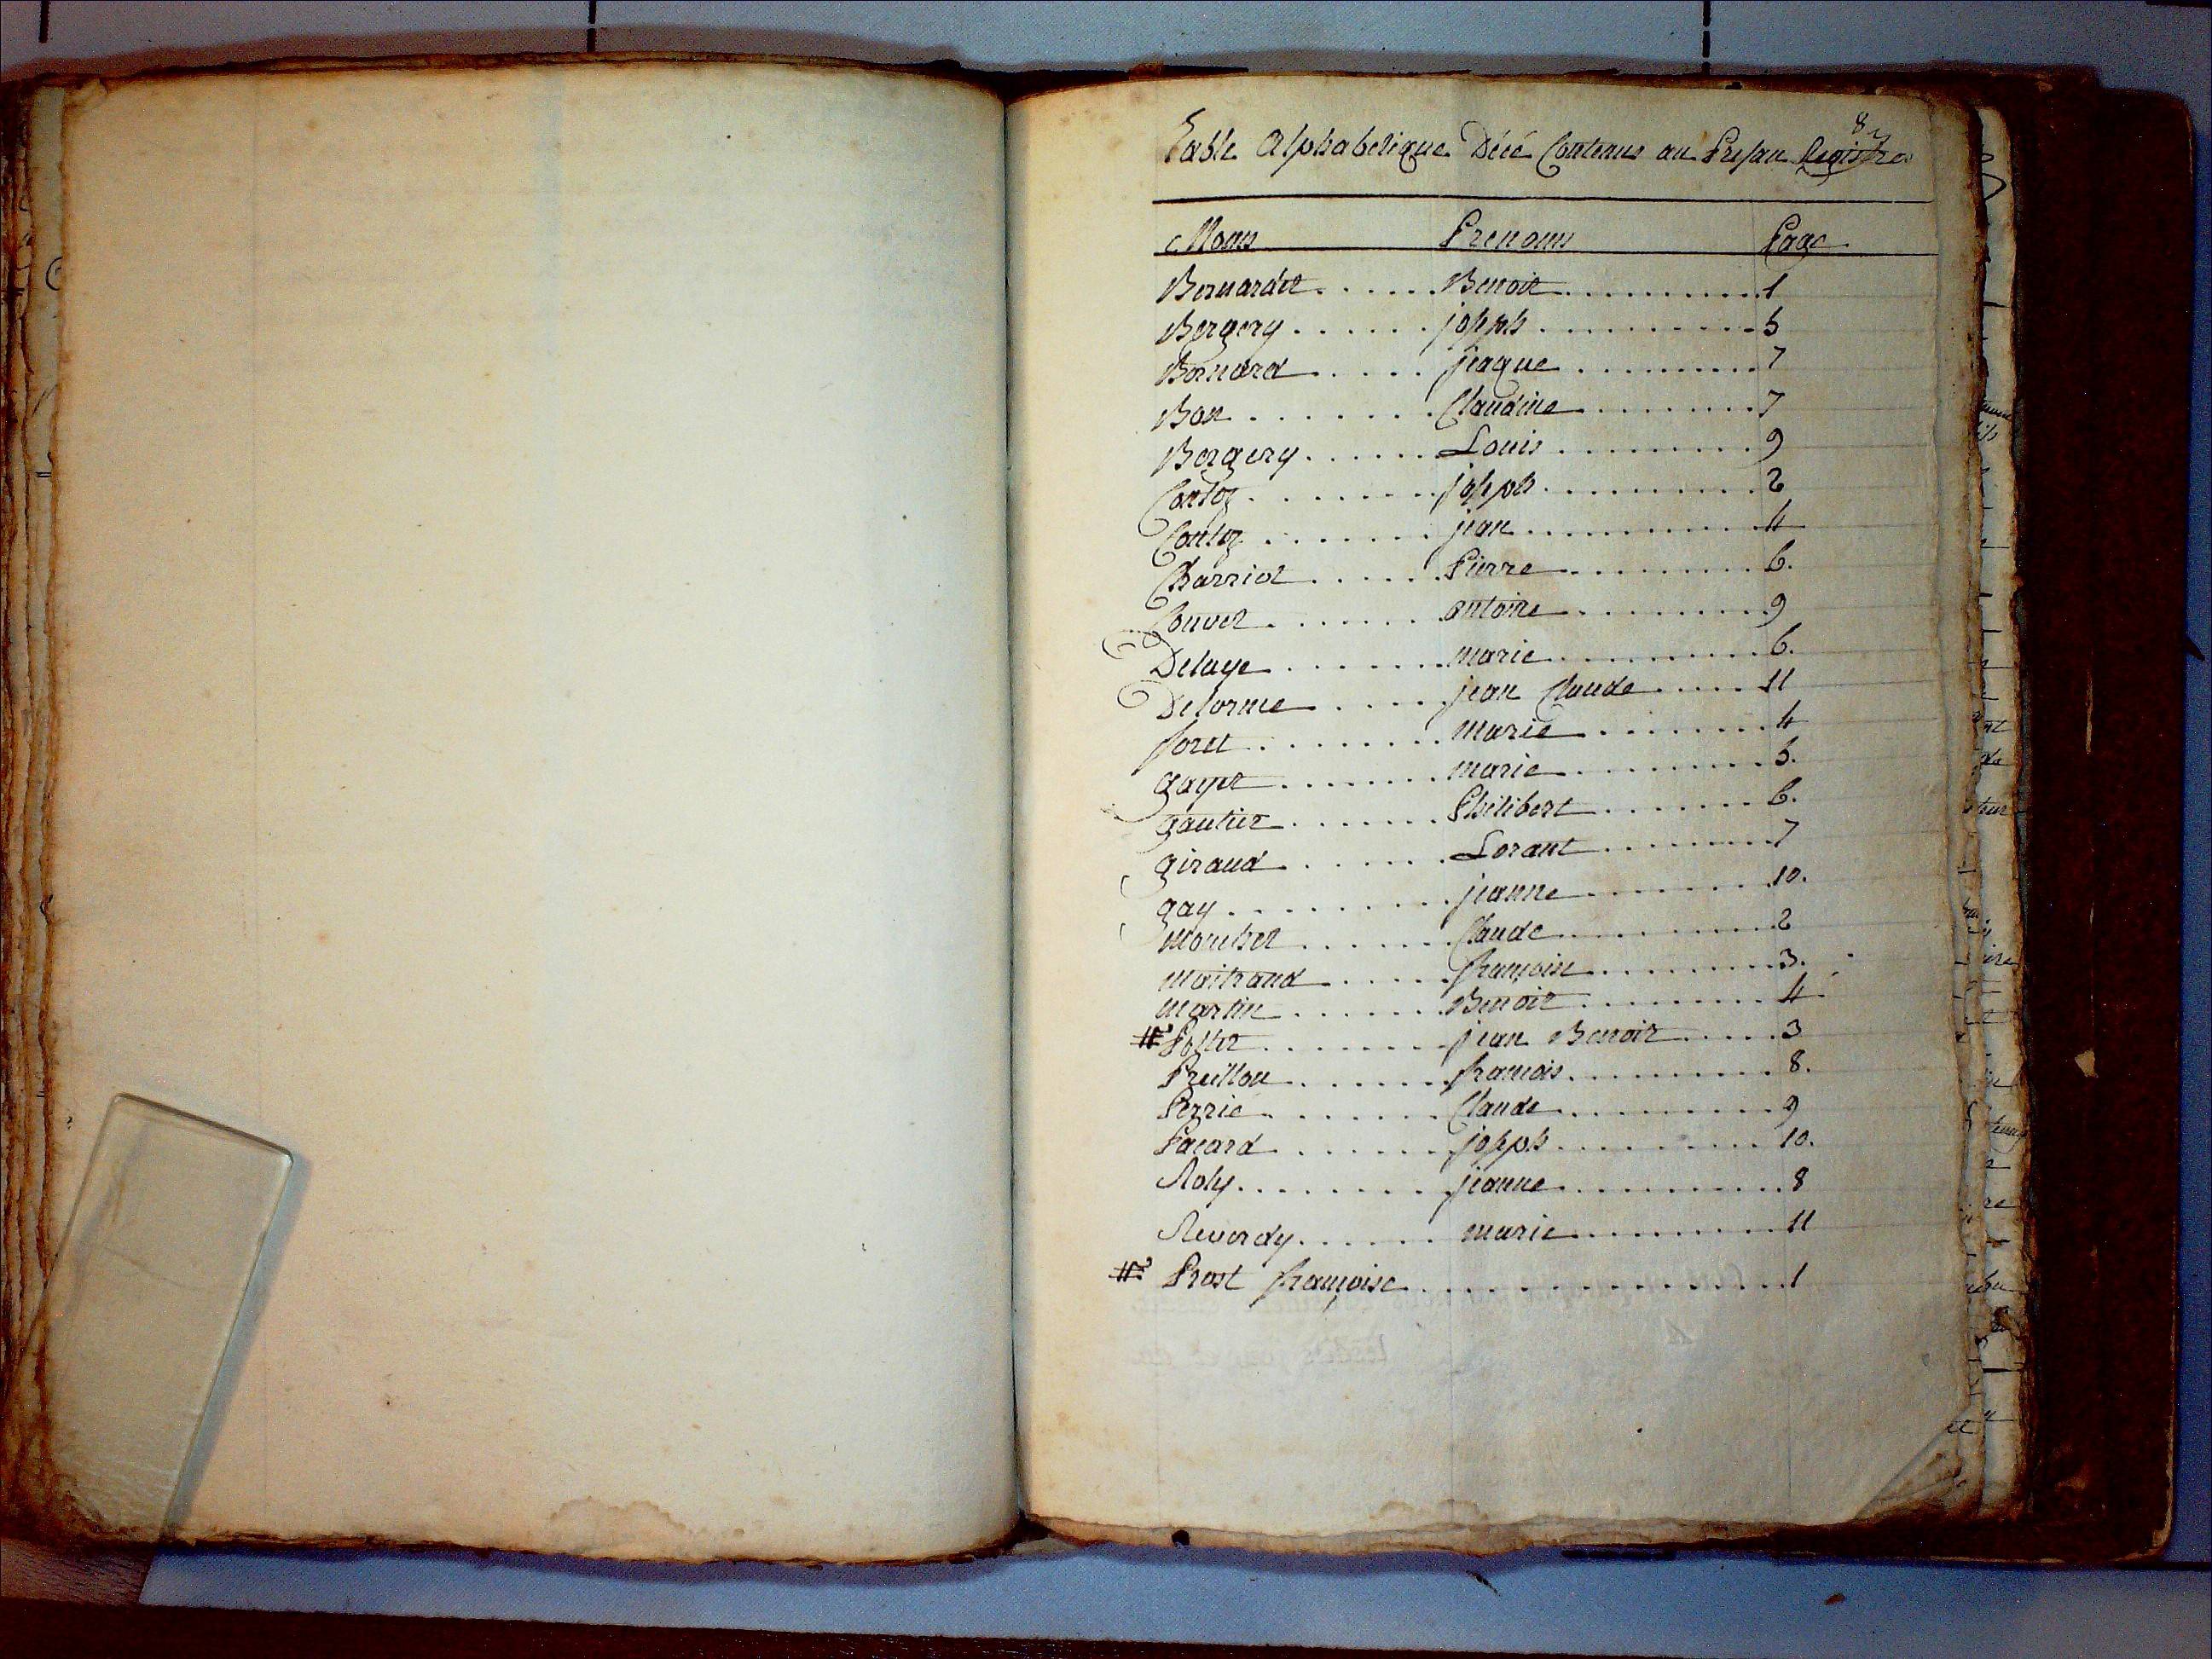 8
Table Alphabetique Décé Contenus au Presan Registre
Noms Prenoms Page
Bernardet . . . . . Benoit . . . . . . . . . . 1
Bergery . . . . . . joseph . . . . . . . . . . 5
Bernard . . . . . jeaque . . . . . . . . . 7
Bon . . . . . . . Claudine . . . . . . . . 7
Bergery . . . . . . Louis . . . . . . . . . 9
joseph . . . . . . . . . . 2
jean . . . . . . . . . . . 4
Charriot . . . . . . Pierre . . . . . . . . . 6.
Couvet . . . . . . . antoine . . . . . . . . 9
Delaye . . . . . . . marie . . . . . . . . . 6.
Delorme . . . . . jean Claude . . . . . 11
foret . . . . . . . . marie . . . . . . . . 4
gayet . . . . . . . marie . . . . . . . . . 5.
gautier . . . . . . . Philibert . . . . . . . 6.
giraud . . . . . . Lorant . . . . . . . . 7
gay . . . . . . . . . jeanne . . . . . . . . 10.
Claude . . . . . . . . . 2
maitrand . . . . . françoise . . . . . . . . 3.
martin . . . . . . Benoit . . . . . . . . . 4
jean Benoit . . . . . 3
Preillon . . . . . . francois . . . . . . . . . 8.
Perrie . . . . . . . Claude . . . . . . . . . . 9
Pacard . . . . . . . joseph . . . . . . . . . 10.
Roly . . . . . . . . . jeanne . . . . . . . . . . 8
Reverdy . . . . . . marie . . . . . . . . . 11
Prost françoise . . . . . . . . . . . . . . . . 1